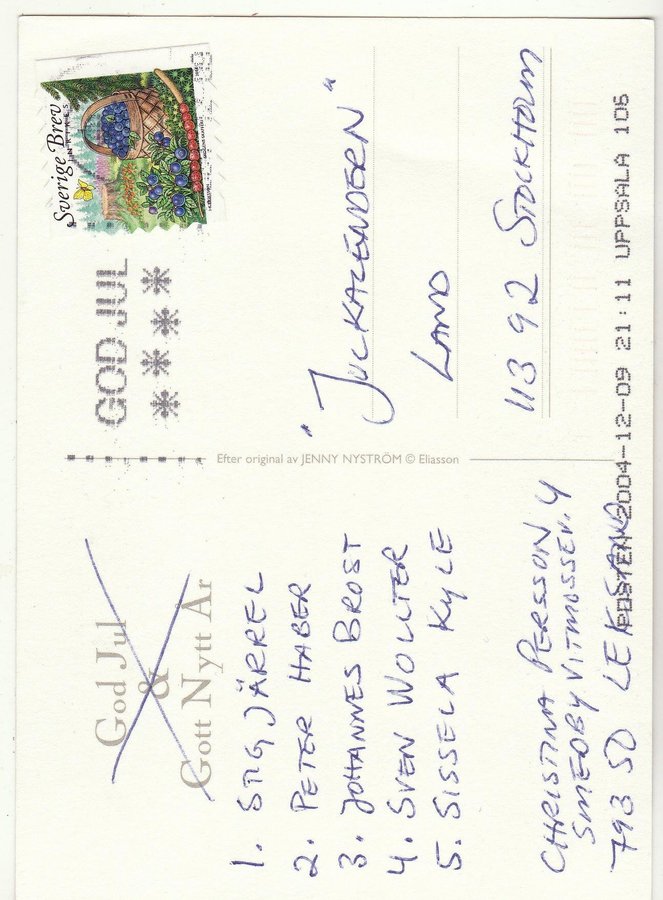 God Jul
&
Gott Nytt År
1. STIG JÄRREL
2. PETER HABER
3. JOHANNES BROST
4. SVEN WOLLTER
5. SISSELA KYLE
CHRISTINA PERSSON
SMEDBY VITMOSSEV. 4
793 50 LEKSAND
Efter original av JENNY NYSTRÖM © Eliasson
Sverige Brev
INRIKES
GOD JUL
"JULKALENDERN"
LAND
113 92 STOCKHOLM
POSTEN 2004-12-09 21:11 UPPSALA 105